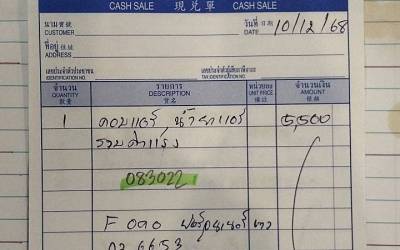 CASH SALE 現兌單 CASH SALE
นาม 寶號
CUSTOMER
วันที่ 日期 10/12/68
DATE
ที่อยู่ 住址
ADDRESS
เลขประจำตัวประชาชน
IDENTIFICATION NO.
เลขประจำตัวผู้เสียภาษีอากร
TAX IDENTIFICATION NO.
จำนวน รายการ หน่วยละ จำนวนเงิน
QUANTITY DESCRIPTION UNIT PRICE AMOUNT
數量 貨名
1 คอมแอร์ น้ำยาแอร์ 5,500
รวมค่าแรง
083022
F
02 6653